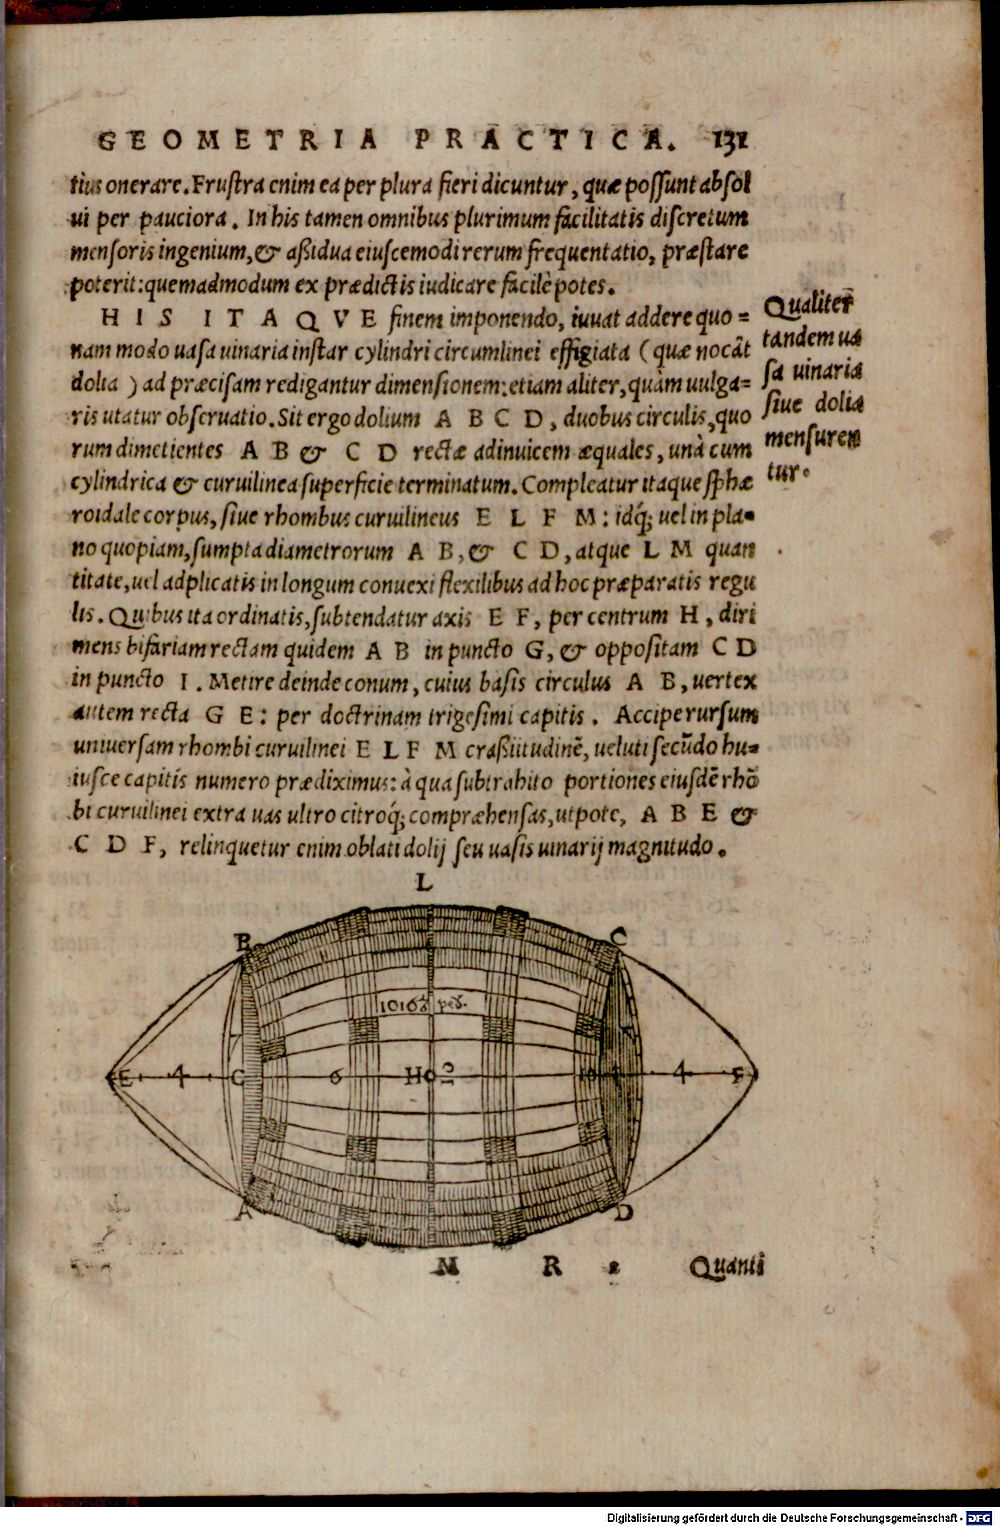 GEOMETRIA PRACTICA. 131
tius onerare. Frustra enim ea per plura fieri dicuntur, quæ possunt absol
ui per pauciora. In his tamen omnibus plurimum facilitatis discretum
mensoris ingenium, & aßidua eiuscemodi rerum frequentatio, præstare
poterit: quemadmodum ex prædictis iudicare facilè potes.
HIS ITAQVE finem imponendo, iuuat addere quo=
nam modo uasa uinaria instar cylindri circumlinei effigiata (quæ nocãt
dolia) ad præcisam redigantur dimensionem: etiam aliter, quàm uulga=
ris utatur obseruatio. Sit ergo dolium A B C D, duobus circulis, quo
rum dimetientes A B & C D rectæ adinuicem æquales, unà cum
cylindrica & curuilinea superficie terminatum. Compleatur itaque sphæ
roidale corpus, siue rhombus curuilineus E L F M: idq́; uel in pla-
no quopiam, sumpta diametrorum A B, & C D, atque L M quan
titate, uel adplicatis in longum conuexi flexilibus ad hoc præparatis regu
lis. Quibus ita ordinatis, subtendatur axis E F, per centrum H, diri
mens bifariam rectam quidem A B in puncto G, & oppositam C D
in puncto I. Metire deinde conum, cuius basis circulus A B, uertex
autem recta G E: per doctrinam trigesimi capitis. Accipe rursum
uniuersam rhombi curuilinei E L F M craßitudinẽ, ueluti secũdo hu-
iusce capitis numero prædiximus: à qua subtrahito portiones eiusdẽ rhõ
bi curuilinei extra uas ultro citroq́; compræhensas, utpote, A B E &
C D F, relinquetur enim oblati dolij seu uasis uinarij magnitudo.
Qualiter
tandem ua
sa uinaria
siue dolia
mensuren
tur.
L
B C
1016 ped.
E 4 G 6 H 12 4 F
A D
M R 2 Quanti
Digitalisierung gefördert durch die Deutsche Forschungsgemeinschaft - DFG